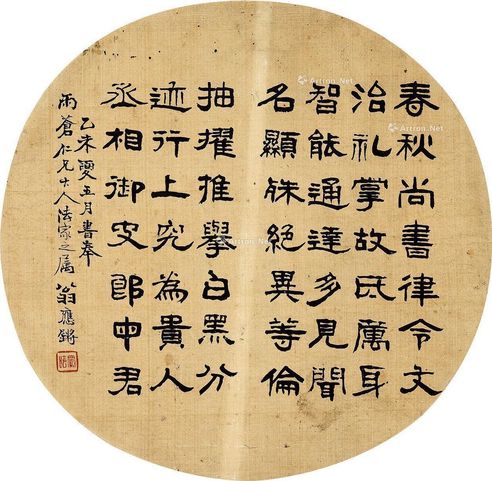 春秋尚書律令文
治礼掌故氐厲身
智能通達多見聞
名顯殊絕異等倫
抽擢推舉白黑分
迹行上究為貴人
丞相御史郎中君
乙未夏五月書奉
雨蒼仁兄大人法家之属 翁應鏘
Artron.Net
Artron.Net